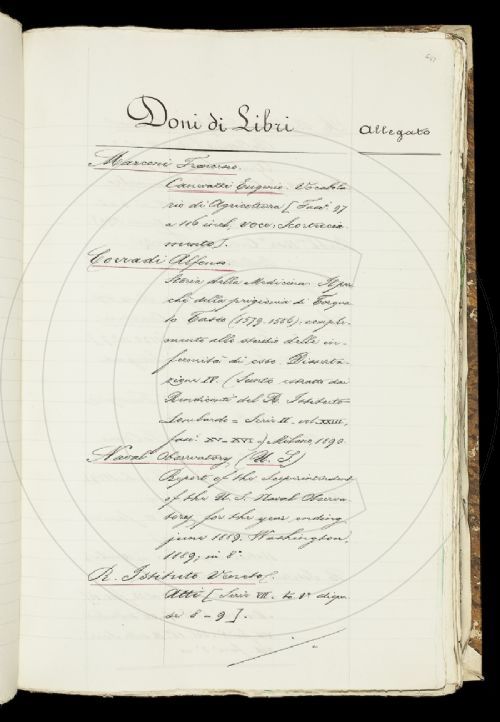 Doni di Libri
Allegato
Marconi Francesco.
Canevazzi Eugenio. Vocabola
rio di Agricoltura [Fasc. 97
a 116 incl, voce: Scortecia
mento].
Corradi Alfonso.
Storia della Medicina. Il per
chè della prigionia di Torqua
to Tasso (1579-1586), comple-
mento allo studio delle in-
fermità di esso. Disserta-
zione IV. (Sunto estratto dai
Rendiconti del R. Istituto
Lombardo = Serie II. vol. XXIII,
fasc. XV-XVI.) Milano, 1890
Naval Observatory (U. S.)
Report of the Superintendent
of the U. S. Naval Observa-
tory, for the year ending
june 1889. Washington,
1889; in 8°.
R. Istituto Veneto.
Atti [Serie VII. to. 1° dispen
sa 8-9].